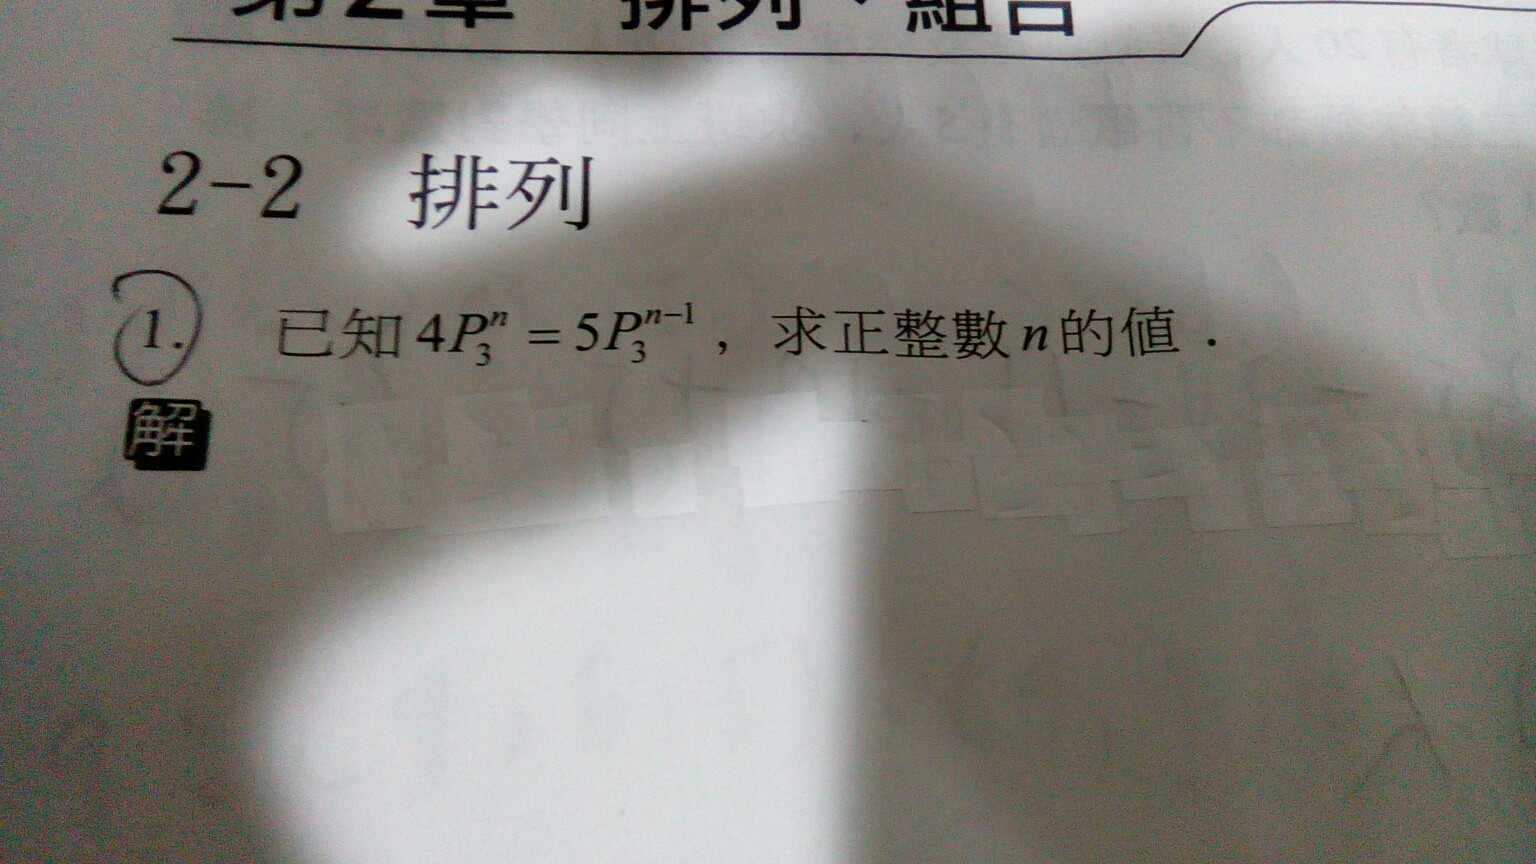 第2章 排列、組合
2-2 排列
1. 已知 4P₃ⁿ = 5P₃ⁿ⁻¹，求正整數 n 的值．
解